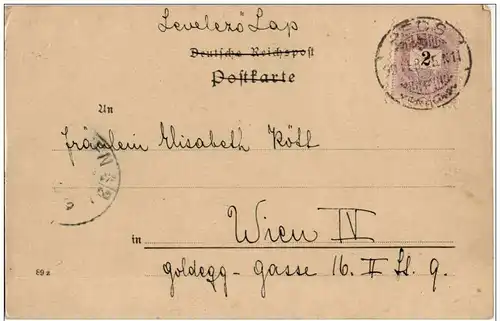 Levelező Lap
PÉCS
2
Deutsche Reichspost
Postkarte
An
Fräulein Elisabeth Kött
in Wien IV
Goldegg-Gasse 16. II St. 9.
69a